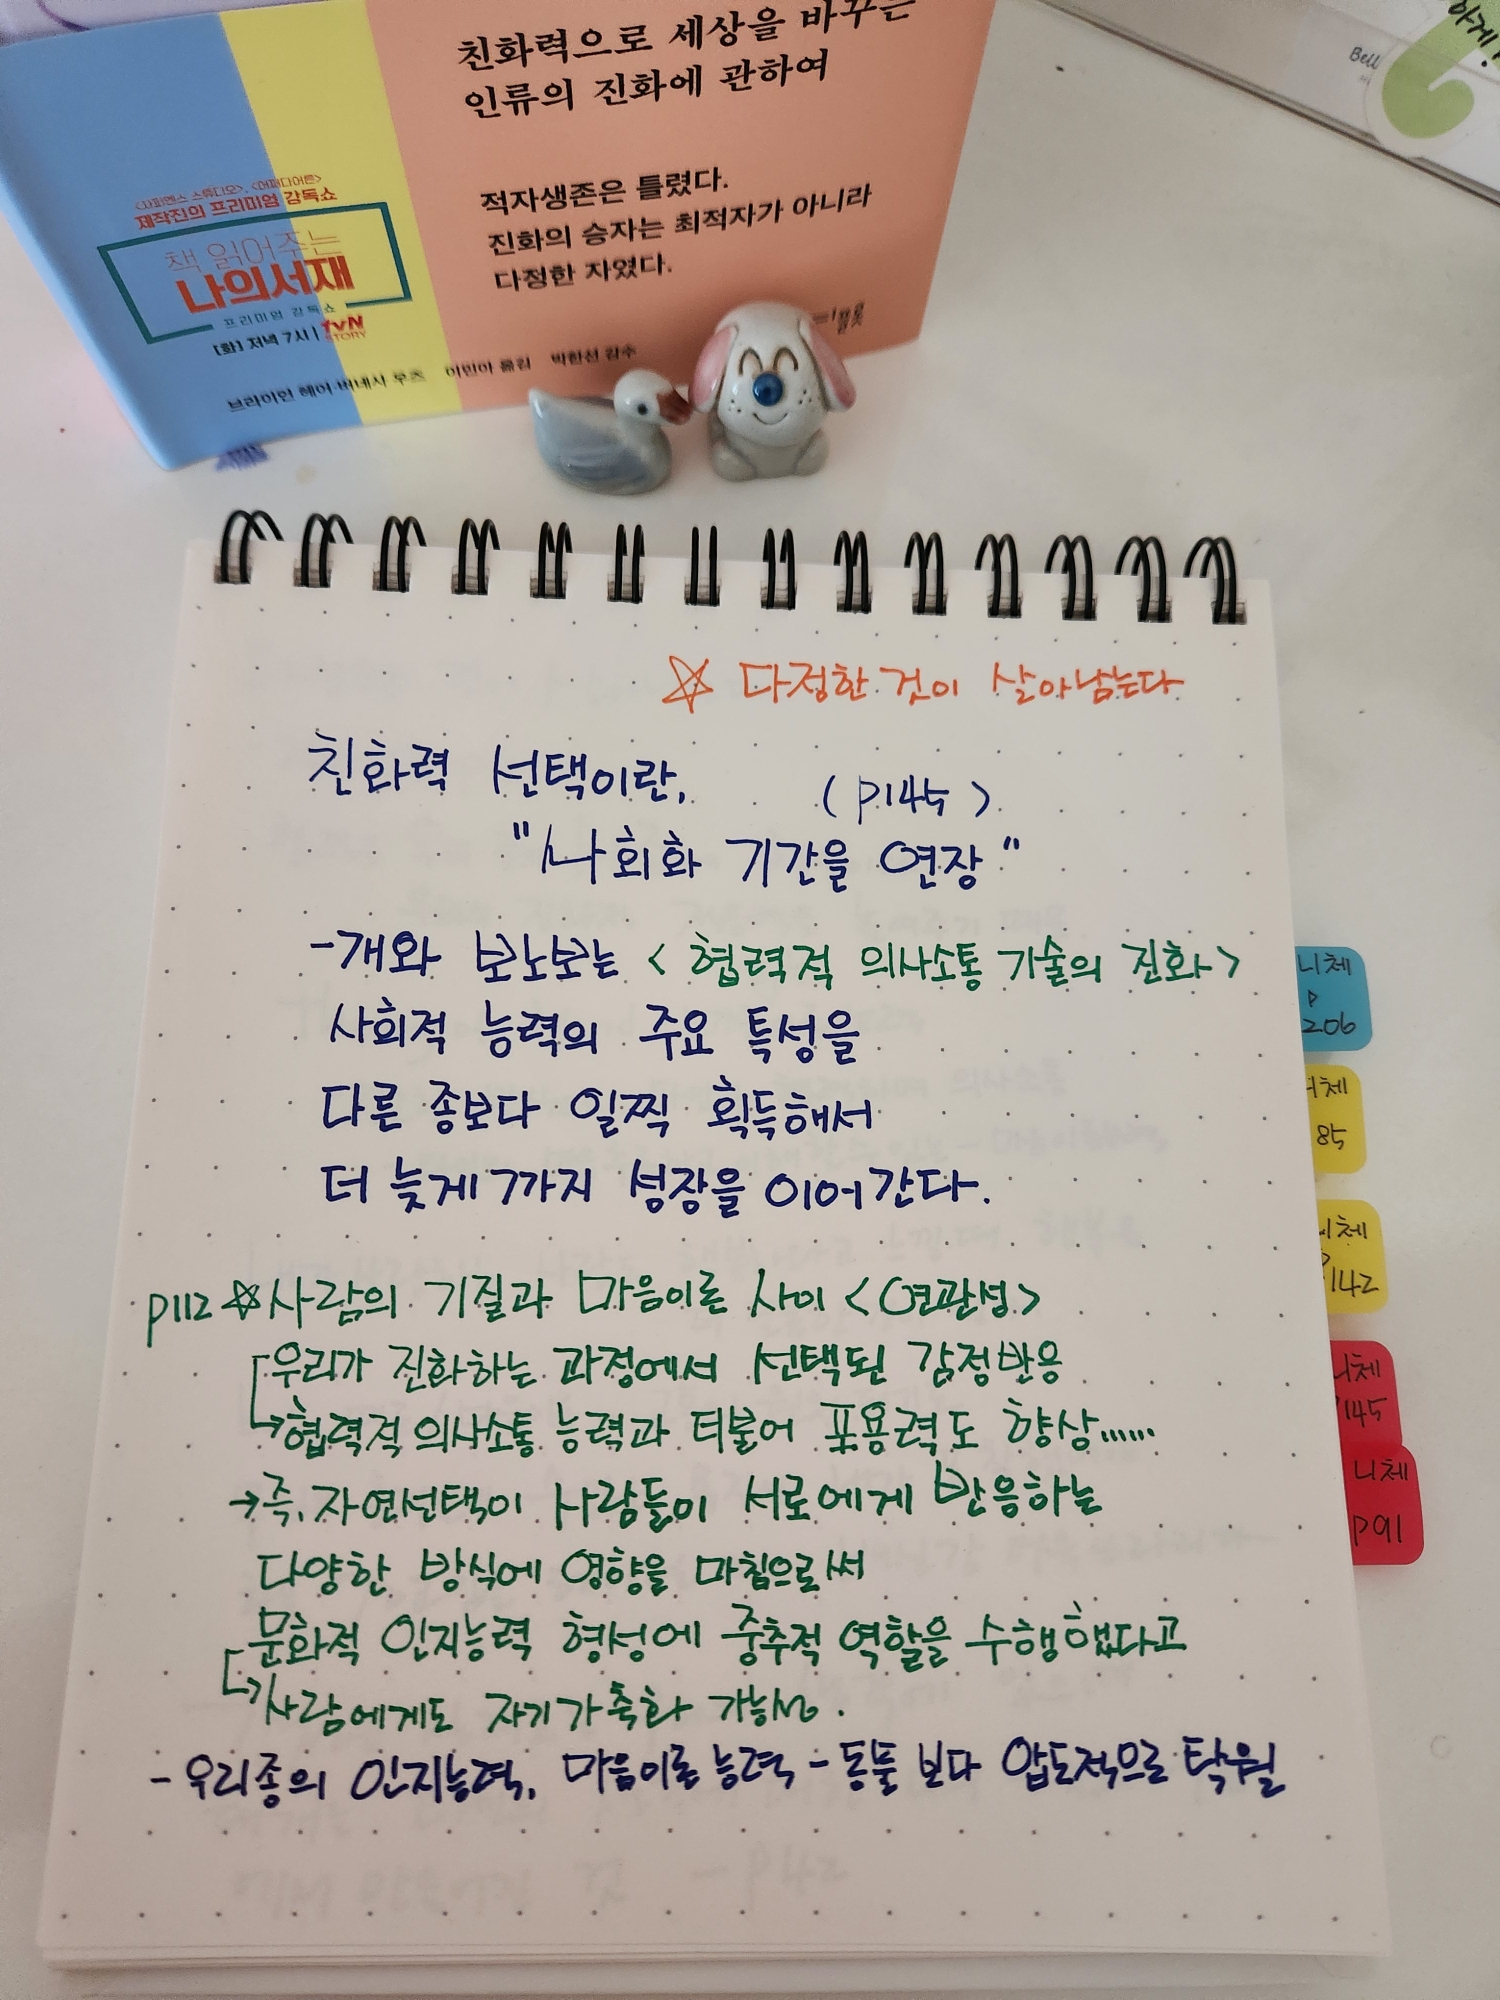 친화력으로 세상을 바꾸는
인류의 진화에 관하여
적자생존은 틀렸다.
진화의 승자는 최적자가 아니라
다정한 자였다.
<사피엔스 스튜디오>, <어쩌다어른>
제작진의 프리미엄 강독쇼
책 읽어주는
나의서재
프리미엄 강독쇼
[화] 저녁 7시 | tvN STORY
브라이언 헤어·버네사 우즈 이민아 옮김 박한선 감수
Bell
☆ 다정한 것이 살아남는다
친화력 선택이란,
(p145)
"사회화 기간을 연장"
-개와 보노보는 <협력적 의사소통 기술의 진화>
사회적 능력의 주요 특성을
다른 종보다 일찍 획득해서
더 늦게까지 성장을 이어간다.
p112 ☆사람의 기질과 마음이론 사이 <연관성>
우리가 진화하는 과정에서 선택된 감정반응
↳협력적 의사소통 능력과 더불어 포용력도 향상......
→즉, 자연선택이 사람들이 서로에게 반응하는
다양한 방식에 영향을 마침으로써
문화적 인지능력 형성에 중추적 역할을 수행했다고
↳사람에게도 자기가축화 가능성.
- 우리종의 인지능력, 마음이론 능력 - 동물 보다 압도적으로 탁월
니체
p
206
니체
85
니체
P142
니체
P145
니체
p91